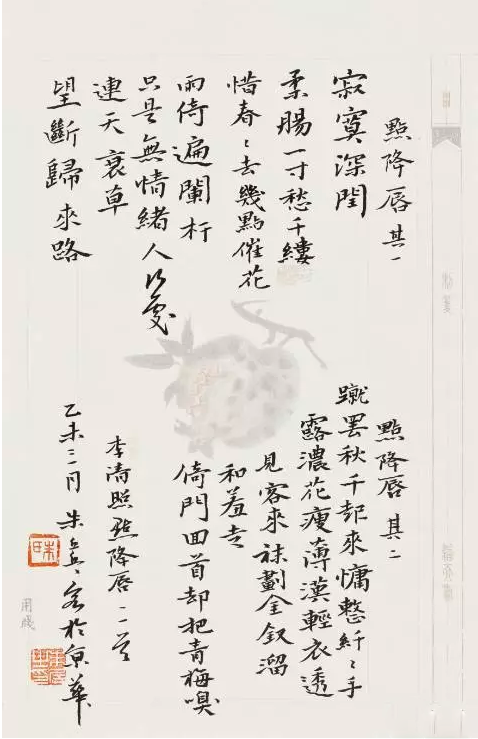 點降唇 其一
寂寞深閨
柔腸一寸愁千縷
惜春〻去幾點催花
雨倚遍闌杆
只是無情緒人何處
連天衰草
望斷歸來路
點降唇 其二
蹴罷秋千起來慵整纖〻手
露濃花瘦薄漢輕衣透
見客來袜剗金釵溜
和羞走
倚門回首却把青梅嗅
李清照點降唇二首
乙未三月 朱 客於京華
用箋